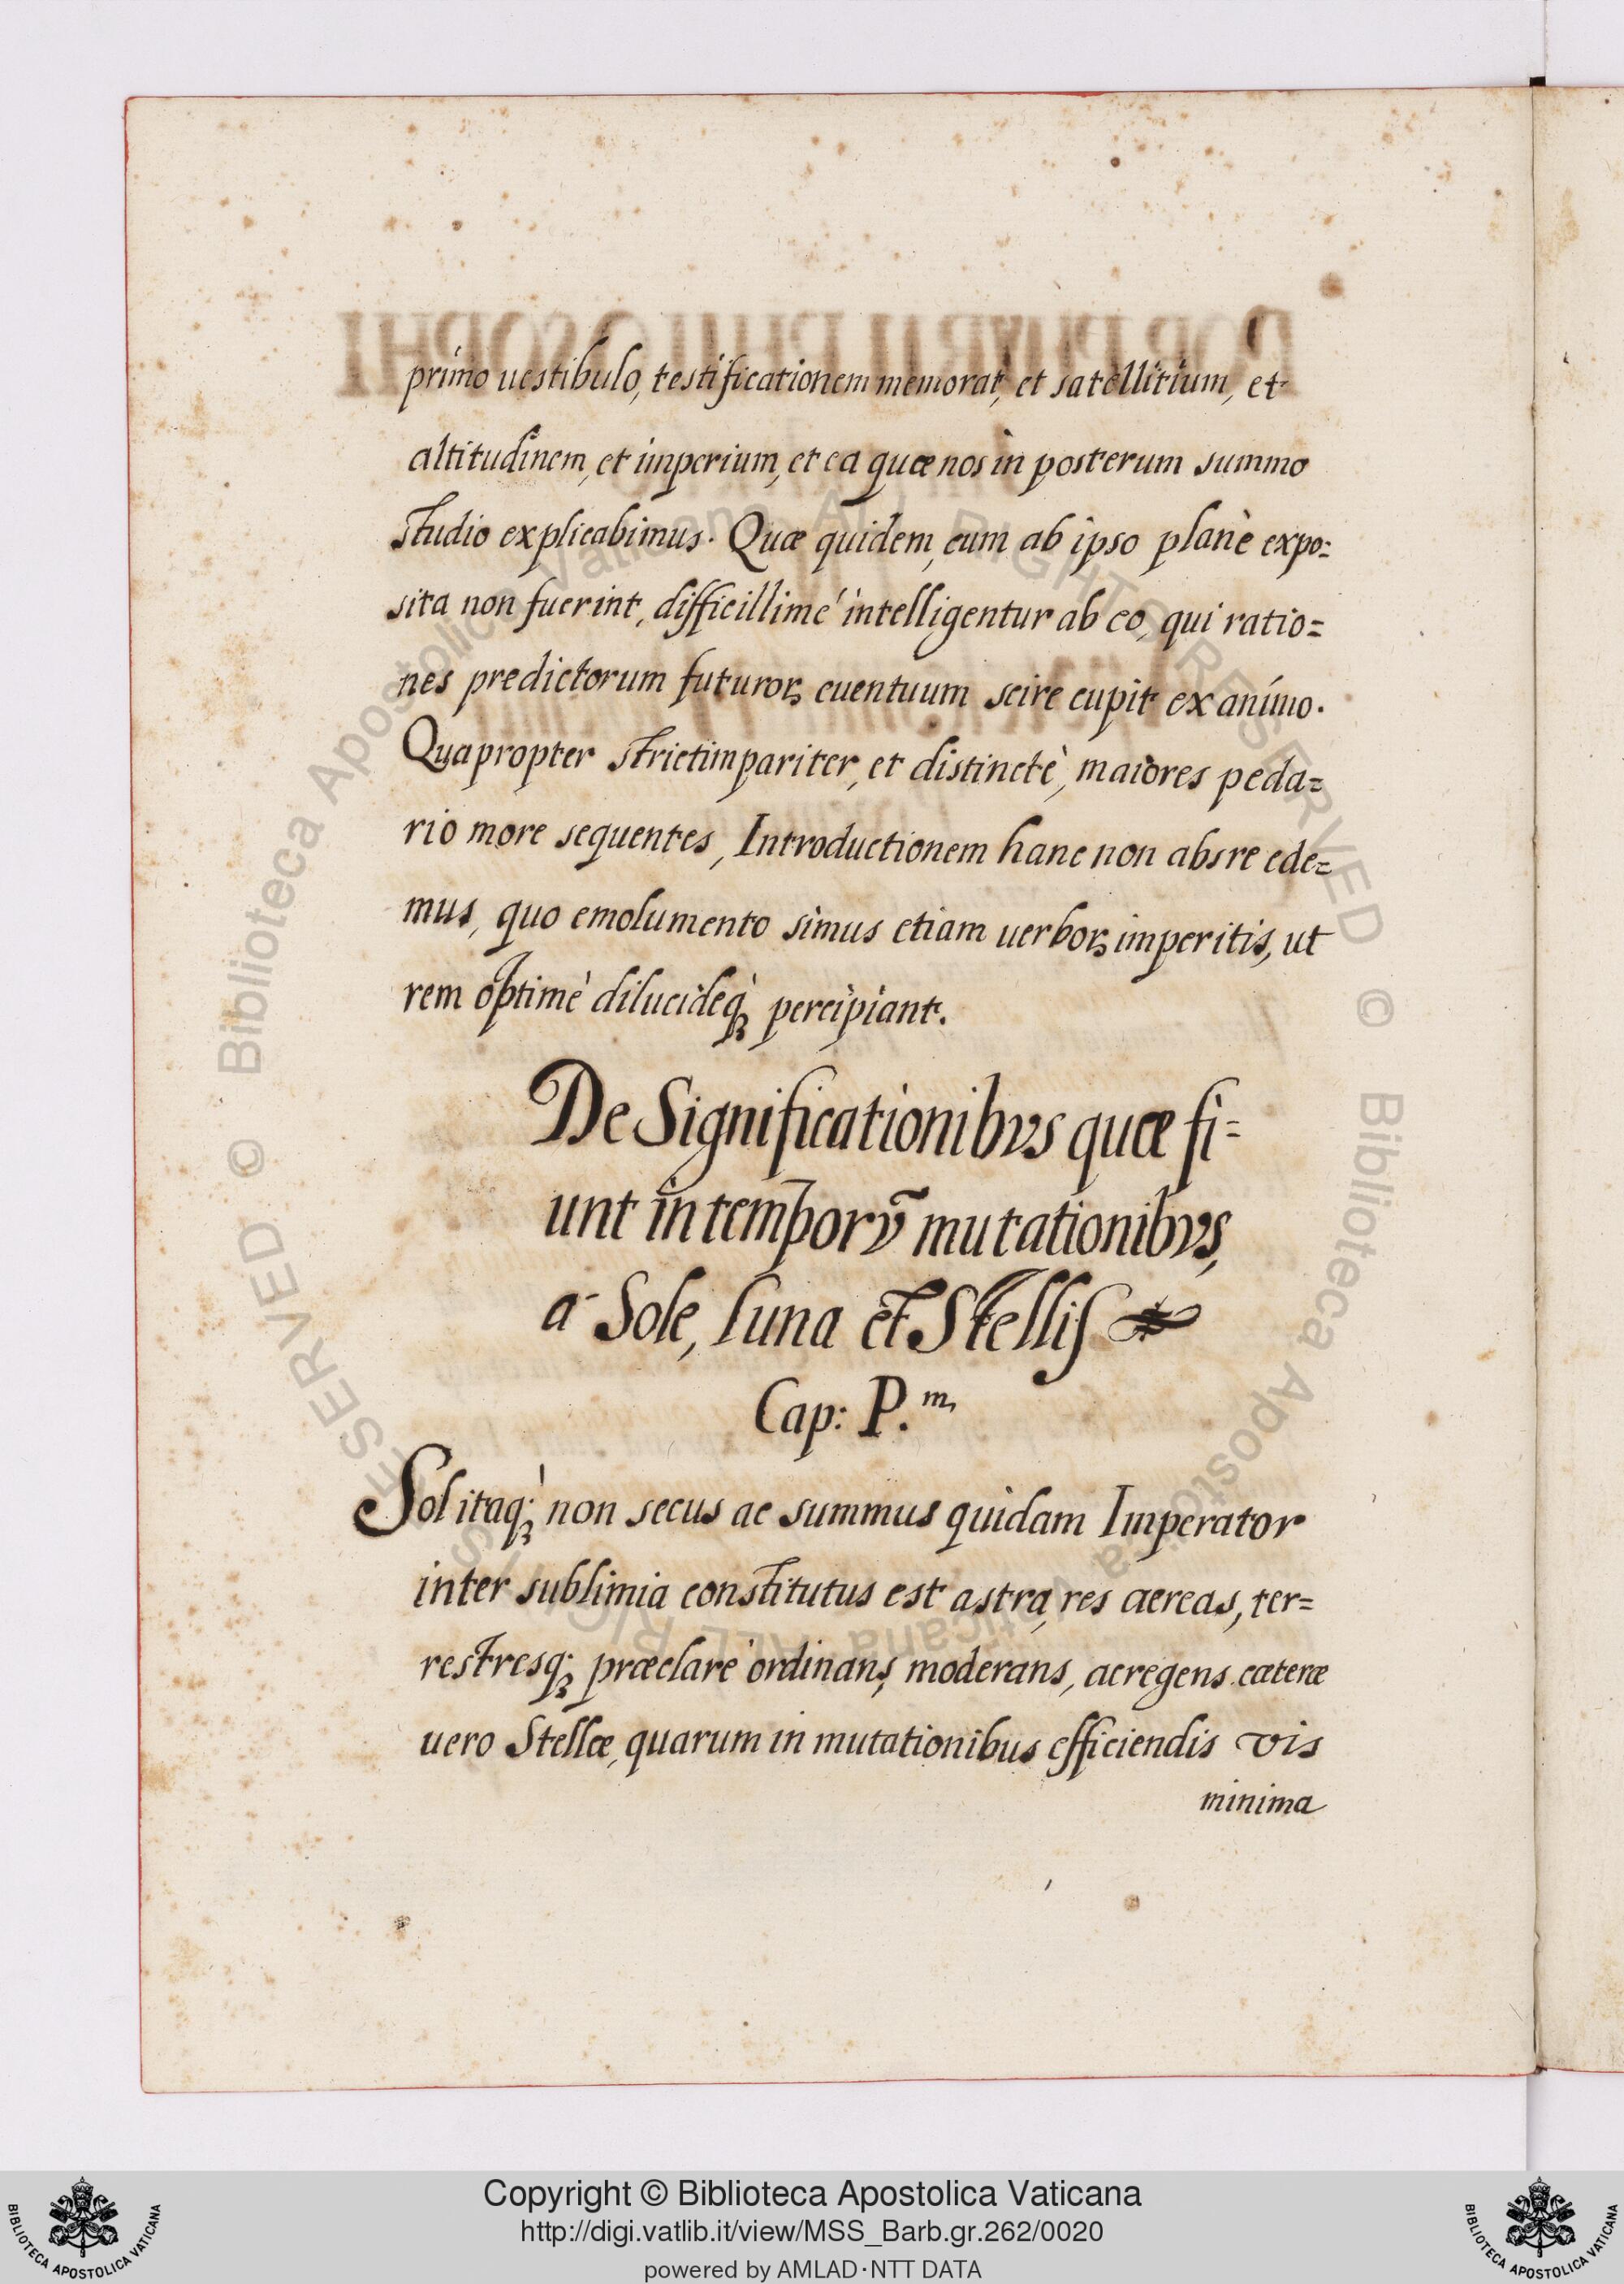 primo uestibulo, testificationem memorat, et satellitium, et
altitudinem, et imperium, et ea quæ nos in posterum summo
studio explicabimus. Quæ quidem, cum ab ipso planè expo=
sita non fuerint, difficillimé intelligentur ab eo, qui ratio=
nes predictorum futuroꝝ euentuum scire cupit ex animo.
Quapropter strictim pariter, et distinctè, maiores peda=
rio more sequentes, Introductionem hanc non absre ede=
mus, quo emolumento simus etiam uerboꝝ imperitis, ut
rem optimè dilucideqꝫ percipiant.
De Significationibvs quæ fi=
unt in temporṽ mutationibvs,
a Sole, Luna et Stellis
Cap: P.m,
Sol itaqꝫ non secus ac summus quidam Imperator
inter sublimia constitutus est astra, res aereas, ter=
restresqꝫ præclarè ordinans, moderans, ac regens. cæteræ
uero Stellæ, quarum in mutationibus efficiendis vis
minima
Copyright © Biblioteca Apostolica Vaticana
http://digi.vatlib.it/view/MSS_Barb.gr.262/0020
powered by AMLAD·NTT DATA
BIBLIOTECA APOSTOLICA VATICANA
BIBLIOTECA APOSTOLICA VATICANA